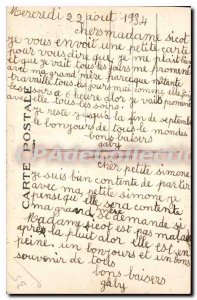 Mercredi 22 août 1934
chersmadame sicot
je vous envoit une petite carte
pour vous dire que je me plait bien
et que je vait tous les jours me promener
avec ma grand mère parceque
travaille tous les jours mais comme elle finit
les soirs a 6 heure alor je vais promener
elle tous les soirs.
je reste jusqua la fin de septembre
le bonjours de tous le mondes
bons baisers
gaby
cher petite simone
je suis bien contente de partir
avec ma petite simone je
pense qu'elle sera contente
ma grand mère se demande si
Madame sicot est pas malade
après la nuit alor elle est en
peine. un bonjours et un bons
souvenir de tous
bons baisers
gaby
CARTE POSTALE